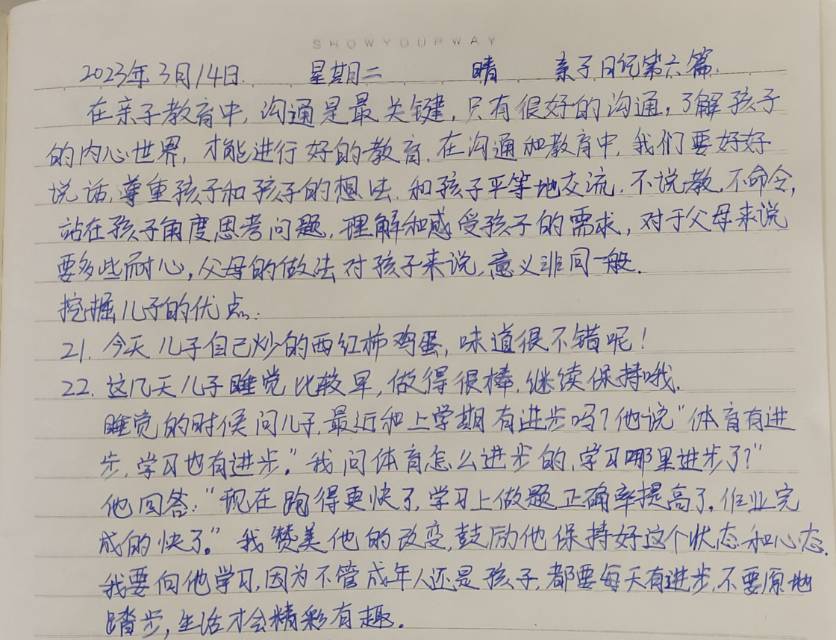 SHOWYOURWAY
2023年3月14日. 星期二 晴 亲子日记第六篇.
在亲子教育中,沟通是最关键,只有很好的沟通,了解孩子
的内心世界,才能进行好的教育.在沟通和教育中,我们要好好
说话,尊重孩子和孩子的想法,和孩子平等地交流.不说教,不命令,
站在孩子角度思考问题,理解和感受孩子的需求,对于父母来说
要多些耐心,父母的做法对孩子来说,意义非同一般.
挖掘儿子的优点:
21.今天儿子自己炒的西红柿鸡蛋,味道很不错呢!
22.这几天儿子睡觉比较早,做得很棒,继续保持哦.
睡觉的时候问儿子,最近和上学期有进步吗?他说"体育有进
步,学习也有进步."我问体育怎么进步的,学习哪里进步了?"
他回答:"现在跑得更快了,学习上做题正确率提高了,作业完
成的快了."我赞美他的改变,鼓励他保持好这个状态和心态.
我要向他学习,因为不管成年人还是孩子,都要每天有进步,不要原地
踏步,生活才会精彩有趣.